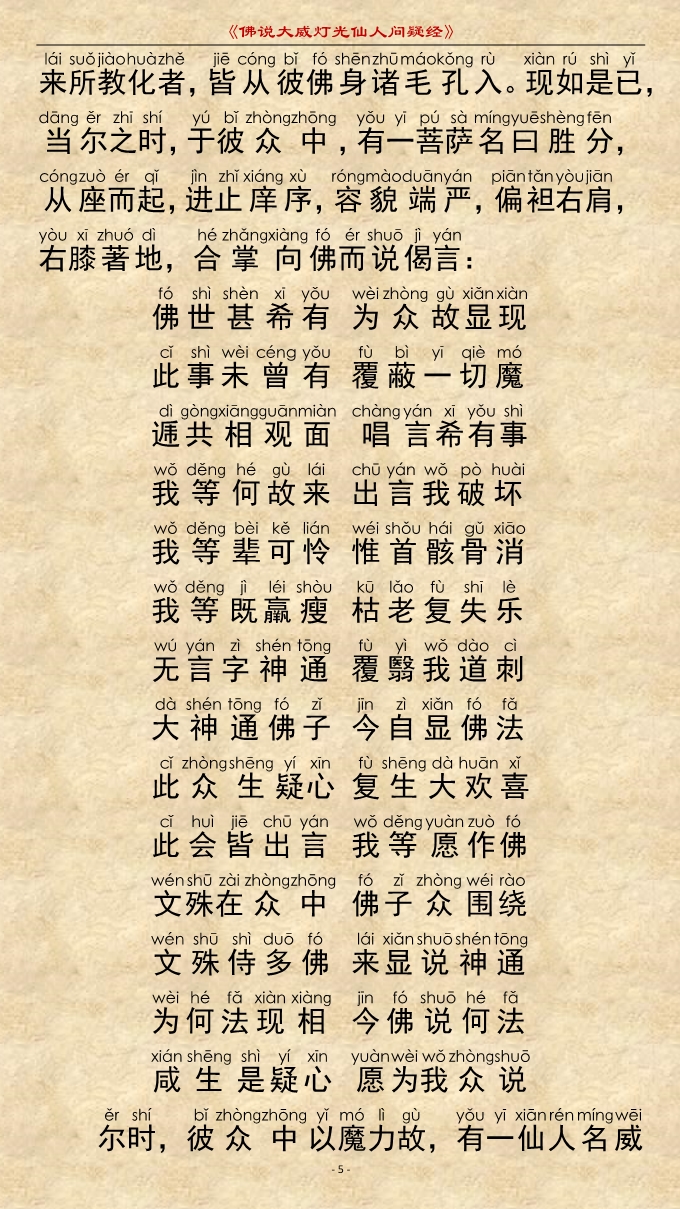 《佛说大威灯光仙人问疑经》
lái suǒ jiào huà zhě jiē cóng bǐ fó shēn zhū máo kǒng rù xiàn rú shì yǐ
来所教化者，皆从彼佛身诸毛孔入。现如是已，
dāng ěr zhī shí yú bǐ zhòng zhōng yǒu yī pú sà míng yuē shèng fēn
当尔之时，于彼众中，有一菩萨名曰胜分，
cóng zuò ér qǐ jìn zhǐ xiáng xù róng mào duān yán piān tǎn yòu jiān
从座而起，进止庠序，容貌端严，偏袒右肩，
yòu xī zhuó dì hé zhǎng xiàng fó ér shuō jì yán
右膝著地，合掌向佛而说偈言：
fó shì shèn xī yǒu wèi zhòng gù xiǎn xiàn
佛世甚希有 为众故显现
cǐ shì wèi céng yǒu fù bì yī qiè mó
此事未曾有 覆蔽一切魔
dì gòng xiāng guān miàn chàng yán xī yǒu shì
逓共相观面 唱言希有事
wǒ děng hé gù lái chū yán wǒ pò huài
我等何故来 出言我破坏
wǒ děng bèi kě lián wéi shǒu hái gǔ xiāo
我等辈可怜 惟首骸骨消
wǒ děng jì léi shòu kū lǎo fù shī lè
我等既羸瘦 枯老复失乐
wú yán zì shén tōng fù yì wǒ dào cì
无言字神通 覆翳我道刺
dà shén tōng fó zǐ jīn zì xiǎn fó fǎ
大神通佛子 今自显佛法
cǐ zhòng shēng yí xīn fù shēng dà huān xǐ
此众生疑心 复生大欢喜
cǐ huì jiē chū yán wǒ děng yuàn zuò fó
此会皆出言 我等愿作佛
wén shū zài zhòng zhōng fó zǐ zhòng wéi rào
文殊在众中 佛子众围绕
wén shū shì duō fó lái xiǎn shuō shén tōng
文殊侍多佛 来显说神通
wèi hé fǎ xiàn xiàng jīn fó shuō hé fǎ
为何法现相 今佛说何法
xián shēng shì yí xīn yuàn wèi wǒ zhòng shuō
咸生是疑心 愿为我众说
ěr shí bǐ zhòng zhōng yǐ mó lì gù yǒu yī xiān rén míng wēi
尔时，彼众中以魔力故，有一仙人名威
- 5 -